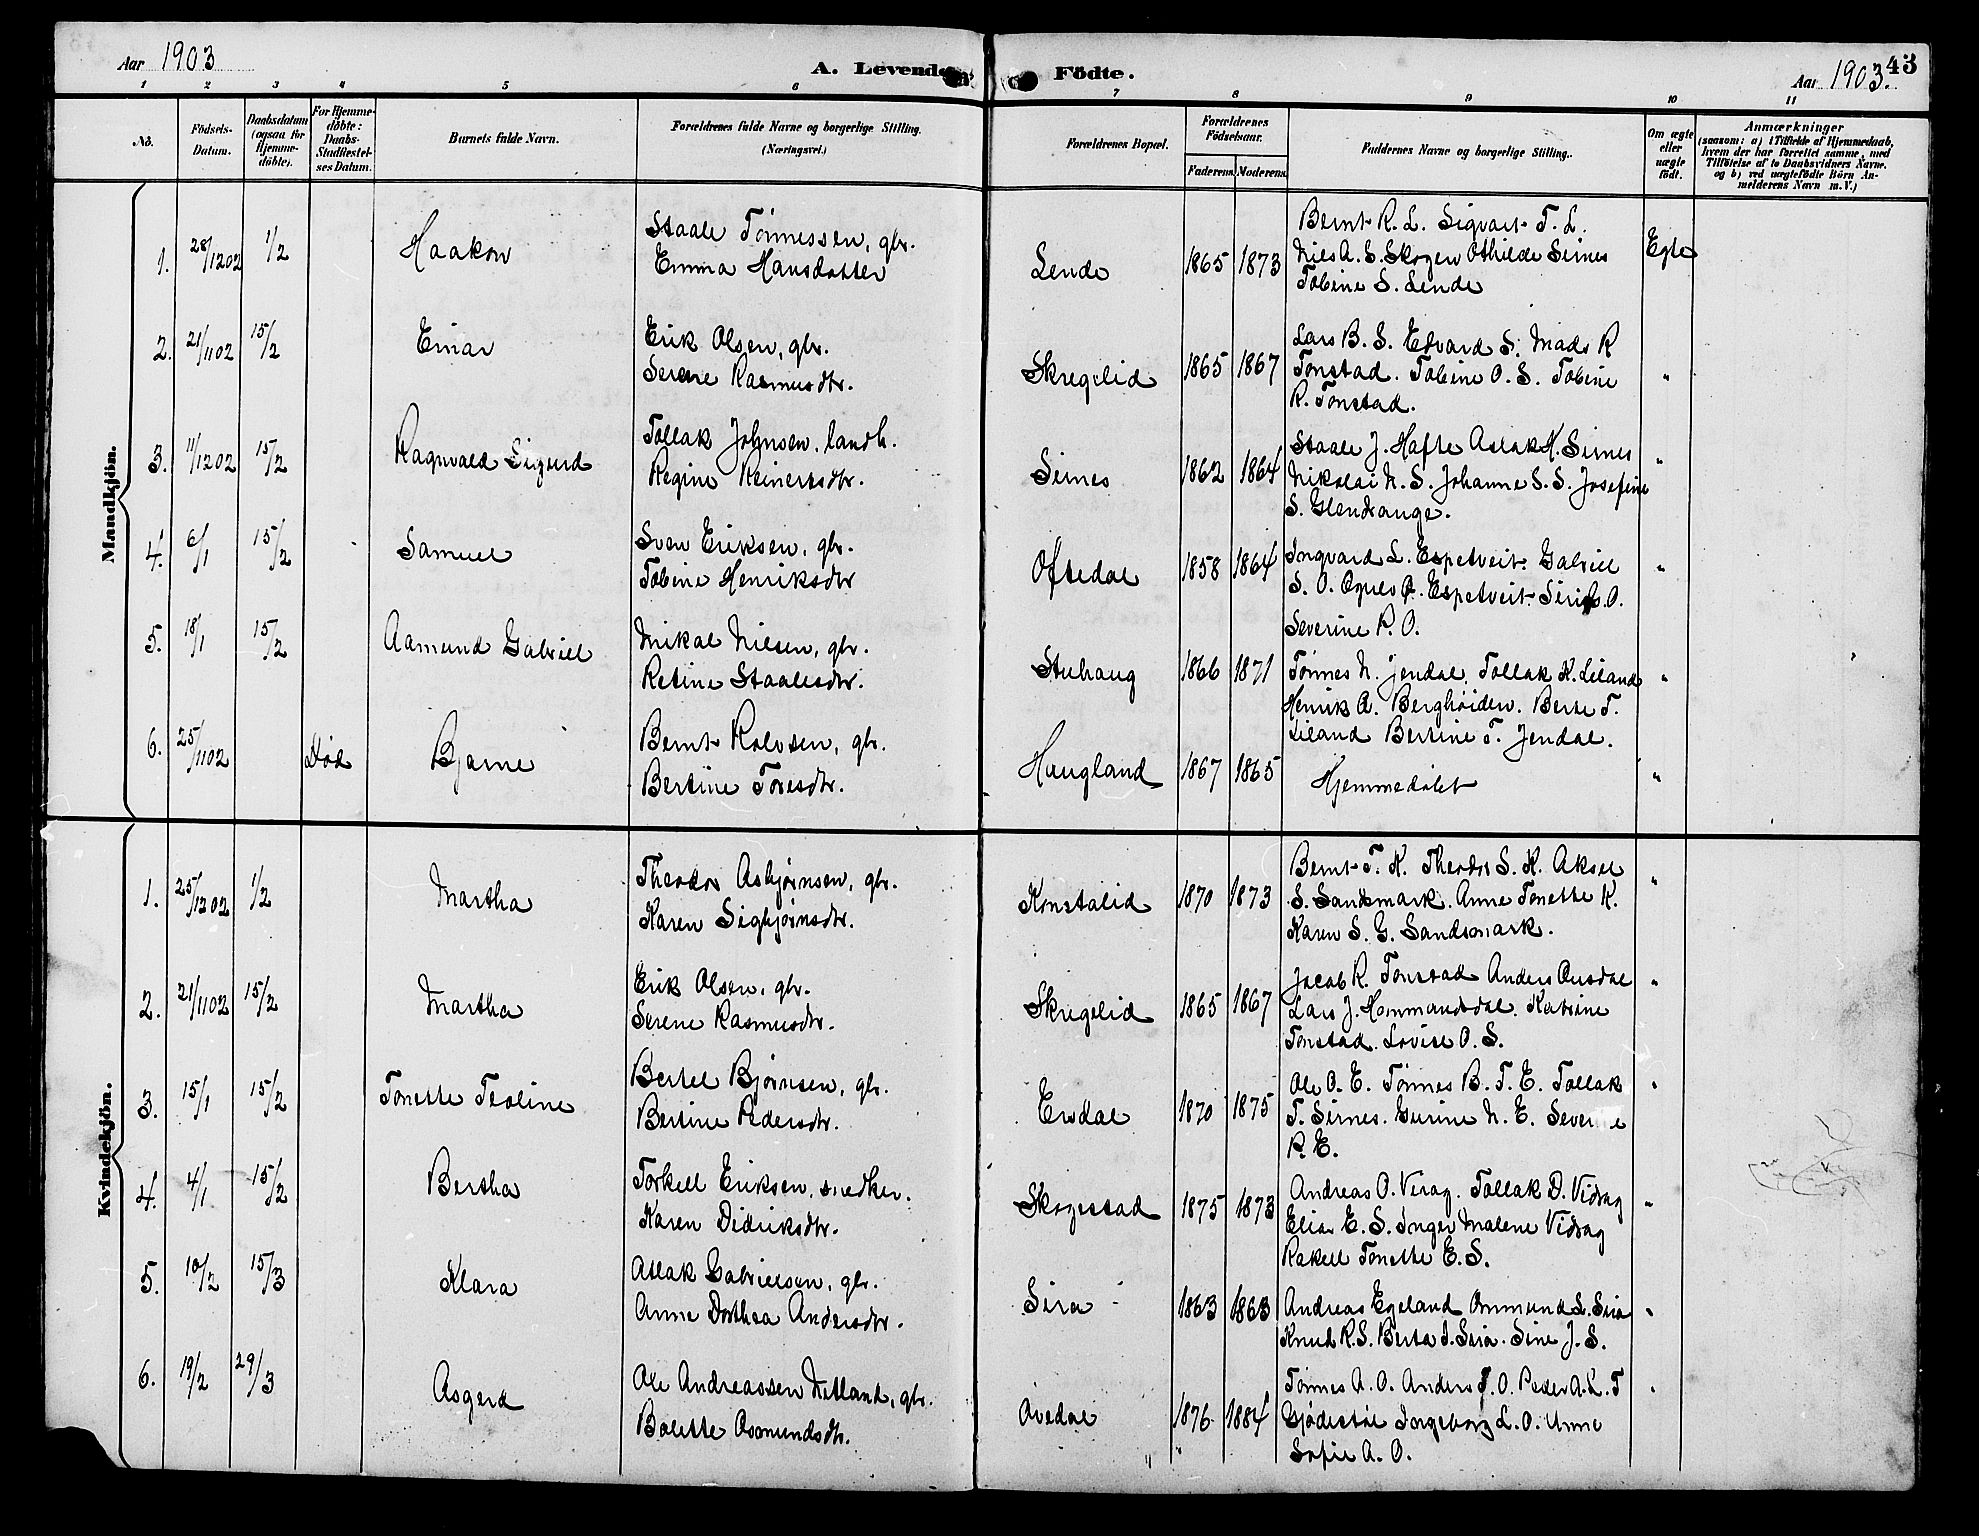 Aar 1903
A. Levende Födte.
Aar 1903.
43
1 2 3 4 5 6 7 8 9 10 11
No.
Födsels-Datum.
Daabsdatum (ogsaa for Hjemme-döbte).
For Hjemme-döbte: Daabs-Stadfæstel-ses Datum.
Barnets fulde Navn.
Forældrenes fulde Navne og borgerlige Stilling.
(Næringsvei.)
Forældrenes Bopæl.
Forældrenes Födselsaar.
Faderens. Moderens.
Faddernes Navne og borgerlige Stilling.
Om ægte eller uægte födt.
Anmærkninger
(saasom: a) i Tilfælde af Hjemmedaab, hvem der har forrettet samme, med Tilföielse af to Daabsvidners Navne, og b) ved uægtefödte Börn An-melderens Navn m. V.)
Mandkjön.
1. 28/1202 1/2 Haakon
Staale Tønnessen, gbr.
Emma Hansdatter
Lende 1865 1873
Bernt R. L. Sigvart T. L.
Nils A. S. Skogen Othilde Sirnes
Tobine S. Lende
Egte
2. 21/1102 15/2 Einar
Erik Olsen, gbr.
Serene Rasmusdtr.
Skregelid 1865 1867
Lars B. S. Edvard S. Mads R
Tonstad. Tobine O. S. Tobine
R. Tonstad.
"
3. 11/1202 15/2 Ragnvald Sigurd
Tollak Johnsen, landh.
Regine Reinertsdtr.
Sirnes 1862 1864
Staale J. Hafte Aslak H. Sirnes
Nikolai N. S. Johanne S. S. Josefine
S. Glendrange.
"
4. 6/1 15/2 Samuel
Sven Eriksen, gbr.
Tobine Henriksdtr
Oftedal 1858 1864
Ingvard L. Espetveit Gabriel
S. O. Espetveit Siri O.
Severine R. O.
"
5. 18/1 15/2 Aamund Gabriel
Mikal Nilsen, gbr.
Retine Staalesdtr.
Stuhaug 1866 1871
Tønnes N. Jendal. Tollak K. Liland
Henrik A. Berghøiden. Berte T.
Liland Bertine T. Jendal.
"
6. 25/1102 Død Bjarne
Bernt Rolvsen, gbr.
Bertine Toresdtr.
Haugland 1867 1865
Hjemmedøbt
"
Kvindekjön.
1. 25/1202 1/2 Martha
Theodor Asbjørnsen, gbr.
Karen Sigbjørnsdtr.
Konstalid 1870 1873
Bernt T. K. Theodor S. K. Aksel
S. Sandsmark. Anne Tonette K.
Karen S. G. Sandsmark.
"
2. 21/1102 15/2 Martha
Erik Olsen, gbr.
Serene Rasmusdtr.
Skregelid 1865 1867
Jacob R. Tonstad Anders Ousdal
Lars J. Hommandsdal. Katrine
Tonstad. Lovise O. S.
"
3. 15/1 15/2 Tonette Teoline
Bertel Bjørnsen, gbr.
Bertine Pedersdtr.
Ersdal 1870 1875
Ole O. E. Tønnes B. T. E. Tollak
T. Sirnes. Gurine N. E. Severine
R. E.
"
4. 4/1 15/2 Bertha
Torkell Eriksen, snedker.
Karen Didriksdtr.
Skogestad 1875 1873
Andreas O. Virag. Tollak D. Vidrag
Elias E. S. Inger Malene Vidrag
Rakell Tonette E. S.
"
5. 10/2 15/3 Klara
Aslak Gabrielsen, gbr.
Anne Dorthea Andersdtr.
Sira 1863 1863
Andreas Egeland Ommund L. Sira
Knud R. S. Berta I. Sira. Sine J. S.
"
6. 19/2 29/3 Asgerd
Ole Andreassen Netland, gbr.
Bolette Osmundsdtr.
Ovedal 1876 1884
Tønnes A. O. Anders J. O. Peder A. L. T
Gjødestøl Ingeborg L. O. Anne
Sofie A. O.
"